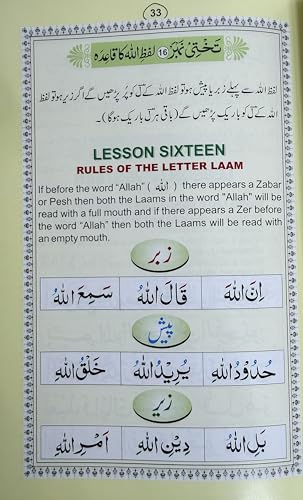 33
تختی نمبر 16 لفظ اللہ کا قاعدہ
لفظ اللہ سے پہلے زبر یا پیش ہو تو لفظ اللہ کے ل کو پُر پڑھیں گے اگر زیر ہو تو لفظ
اللہ کے ل کو باریک پڑھیں گے (باقی ہر ل باریک ہوگا)۔
LESSON SIXTEEN
RULES OF THE LETTER LAAM
If before the word "Allah" ( اللہ ) there appears a Zabar
or Pesh then both the Laams in the word "Allah" will be
read with a full mouth and if there appears a Zer before
the word "Allah" then both the Laams will be read with
an empty mouth.
زبر
اِنَّ اللهَ قَالَ اللهُ سَمِعَ اللهُ
پیش
حُدُوْدُ اللهِ يُرِيْدُ اللهُ خَلْقُ اللهِ
زیر
بَلِ اللهُ دِيْنِ اللهِ اَمْرِ اللهِ